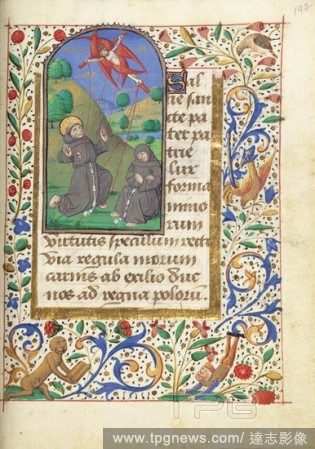 142
Sal
ue san
cte pa
ter pa
trie
lux
forma
mino
rum
Virtutis speculum recti
via regula morum
carnis ab exilio duc
nos ad regna polorum.
TPG
www.tpgnews.com/ 達志影像